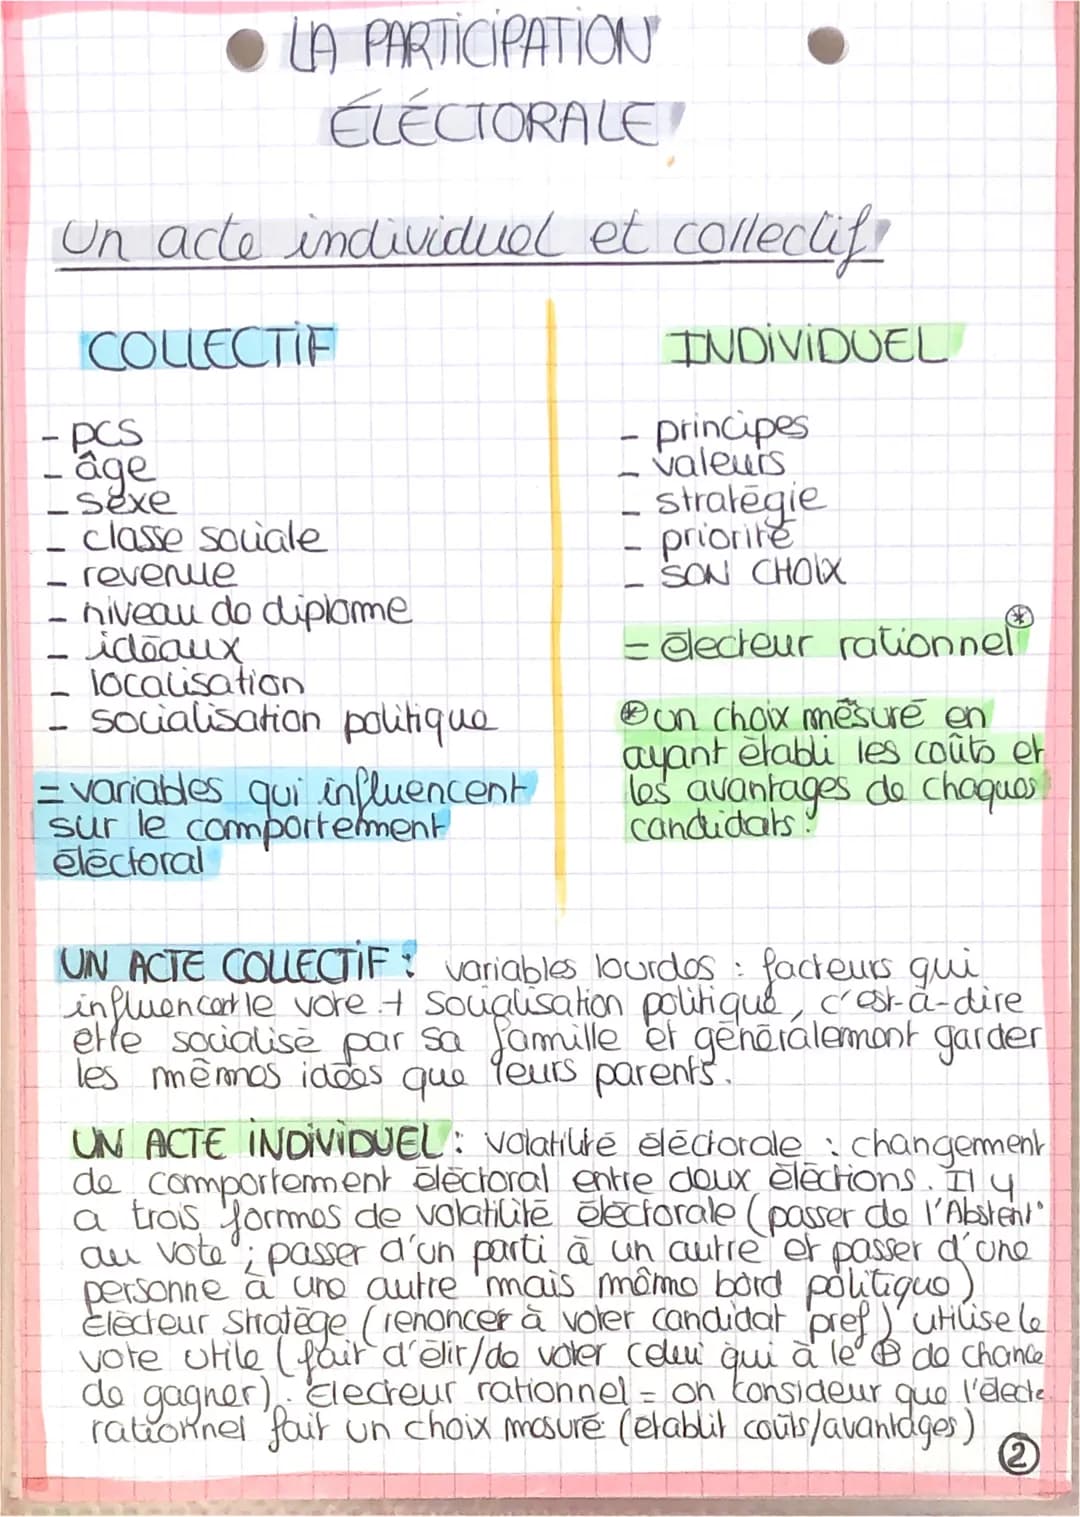 LA PARTICIPATION
ÉLÉCTORALE
Un acte individuel et collectif
COLLECTIF
- pcs
- âge
- sexe
- classe sociale
- revenue
- niveau de diplome
- idéaux
- localisation
- socialisation politique
= variables qui influencent
sur le comportement
éléctoral
INDIVIDUEL
- principes
- valeurs
- stratégie
- priorité
- SON CHOIX
= électeur rationnel *
* un choix mésuré en
ayant établi les coûts et
les avantages de chaques
candidats.
UN ACTE COLLECTIF : variables lourdes : facteurs qui
influencent le vote + socialisation politique, c'est-à-dire
être socialisé par sa famille et généralement garder
les mêmes idées que leurs parents.
UN ACTE INDIVIDUEL : volatilité éléctorale : changement
de comportement éléctoral entre deux éléctions. Il y
a trois formes de volatilité éléctorale (passer de l'Abstent°
au vote ; passer d'un parti à un autre et passer d'une
personne à une autre mais même bord politique)
Electeur stratège (renoncer à voter candidat pref) utilise le
vote utile (fait d'élir/de voter celui qui à le ⊕ de chance
de gagner). Electeur rationnel = on consideur que l'élécte
rationnel fait un choix mesuré (établit coûts/avantages)
2